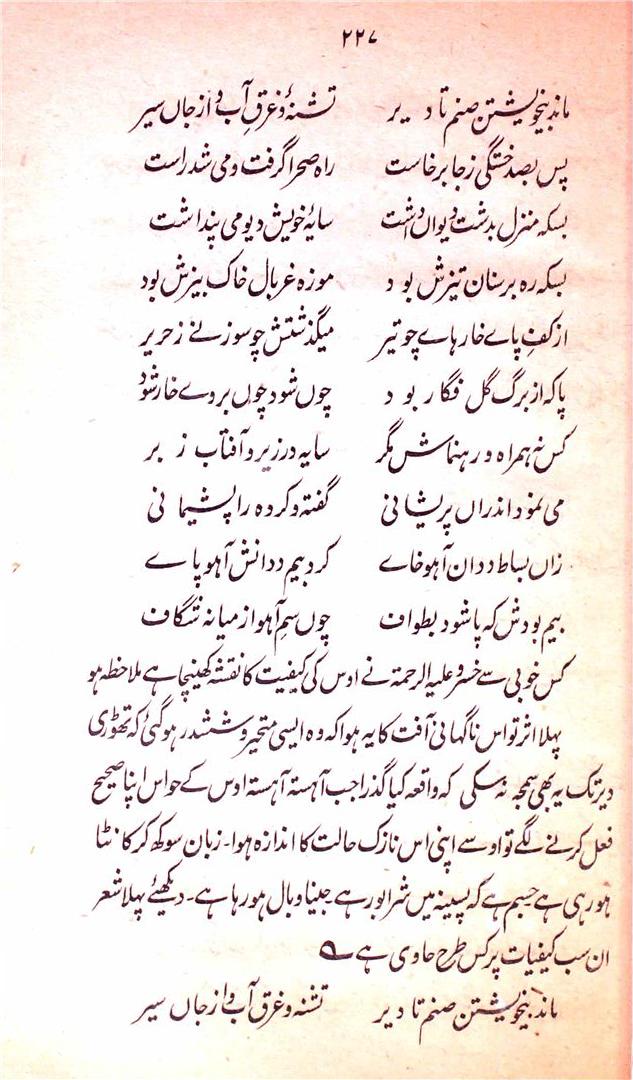 ۲۲۷
ماند بیخویشتن صنم تا دیر تشنہ و غرقِ آب و از جاں سیر
پس بصد خستگی ز جا برخاست راہ صحرا گرفت و می شد راست
بسکہ منزل بدشت دیواں داشت سایۂ خویش دیو می پنداشت
بسکہ رہ بر سنان تیزش بود موزہ غربال خاک بیزش بود
از کفِ پاے خارہاے چو تیر میگذشتش چو سوزنے ز حریر
پا کہ از برگ گل فگار بود چوں شود چوں بروے خار شود
کس نہ ہمراہ و رہنماش مگر سایہ در زیر و آفتاب زبر
می نمود اندراں پریشانی گفتہ و کردہ را پشیمانی
زاں بساط ددان آہو خاے کرد بیم ددانش آہو پاے
بیم بودش کہ پا شود بطواف چوں سمِ آہو از میانہ شگاف
کس خوبی سے خسرو علیہ الرحمۃ نے اوس کی کیفیت کا نقشہ کھینچا ہے ملاحظہ ہو
پہلا اثر تو اس ناگہانی آفت کا یہ ہوا کہ وہ ایسی متحیر و ششدر ہو گئی کہ تھوڑی
دیر تک یہ بھی سمجھ نہ سکی کہ واقعہ کیا گذرا جب آہستہ آہستہ اوس کے حواس اپنا صحیح
فعل کرنے لگے تو اوسے اپنی اس نازک حالت کا اندازہ ہوا۔ زبان سوکھ کر کانٹا
ہو رہی ہے جسم ہے کہ پسینہ میں شرابور ہے جینا وبال ہو رہا ہے۔ دیکھئے پہلا شعر
ان سب کیفیات پر کس طرح حاوی ہے
ماند بیخویشتن صنم تا دیر تشنہ و غرق آب و از جاں سیر